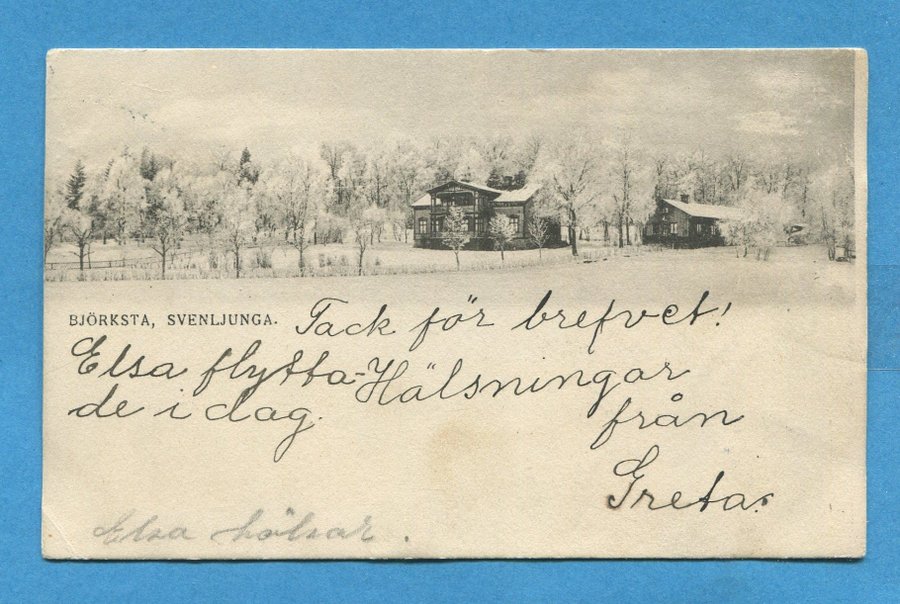 BJÖRKSTA, SVENLJUNGA.
Tack för brefvet!
Elsa flytta-
de i dag.
Hälsningar
från
Greta.
Elsa hälsar.